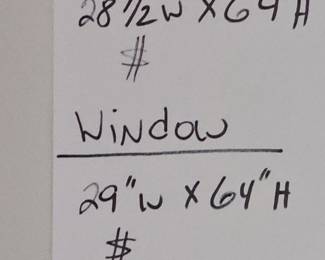 28 1/2 W X 64 H
#
Window
29" W X 64" H
#